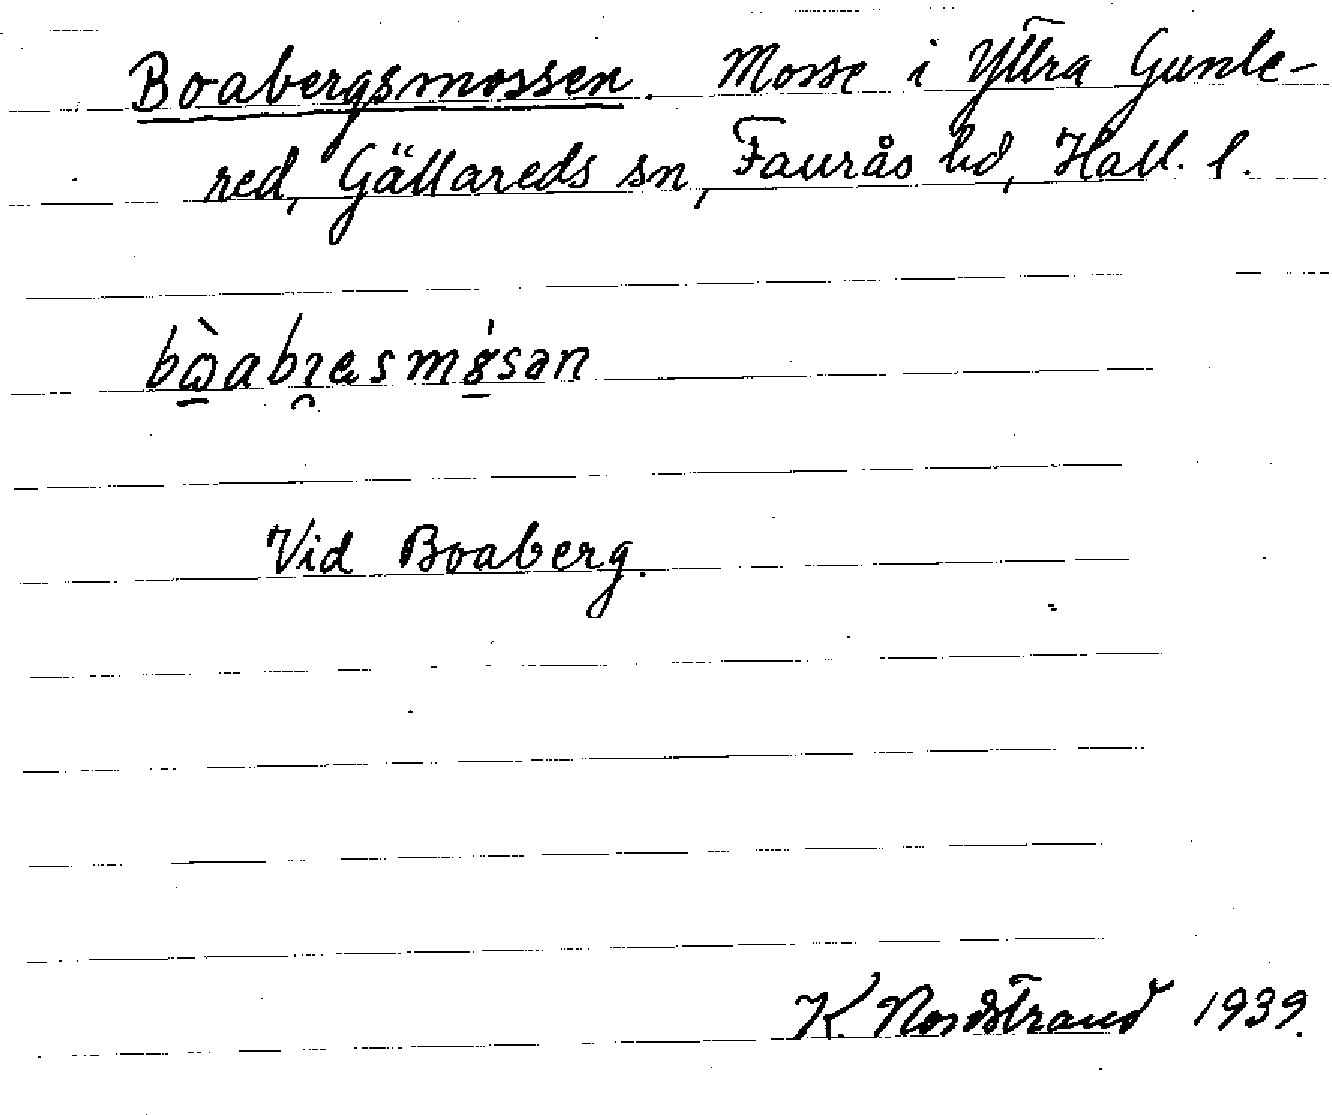 Boabergsmossen. Mosse i Yttra Gunle-
red, Gällareds sn, Faurås hd, Hall. l.
Vid Boaberg.
K. Nordstrand 1939.